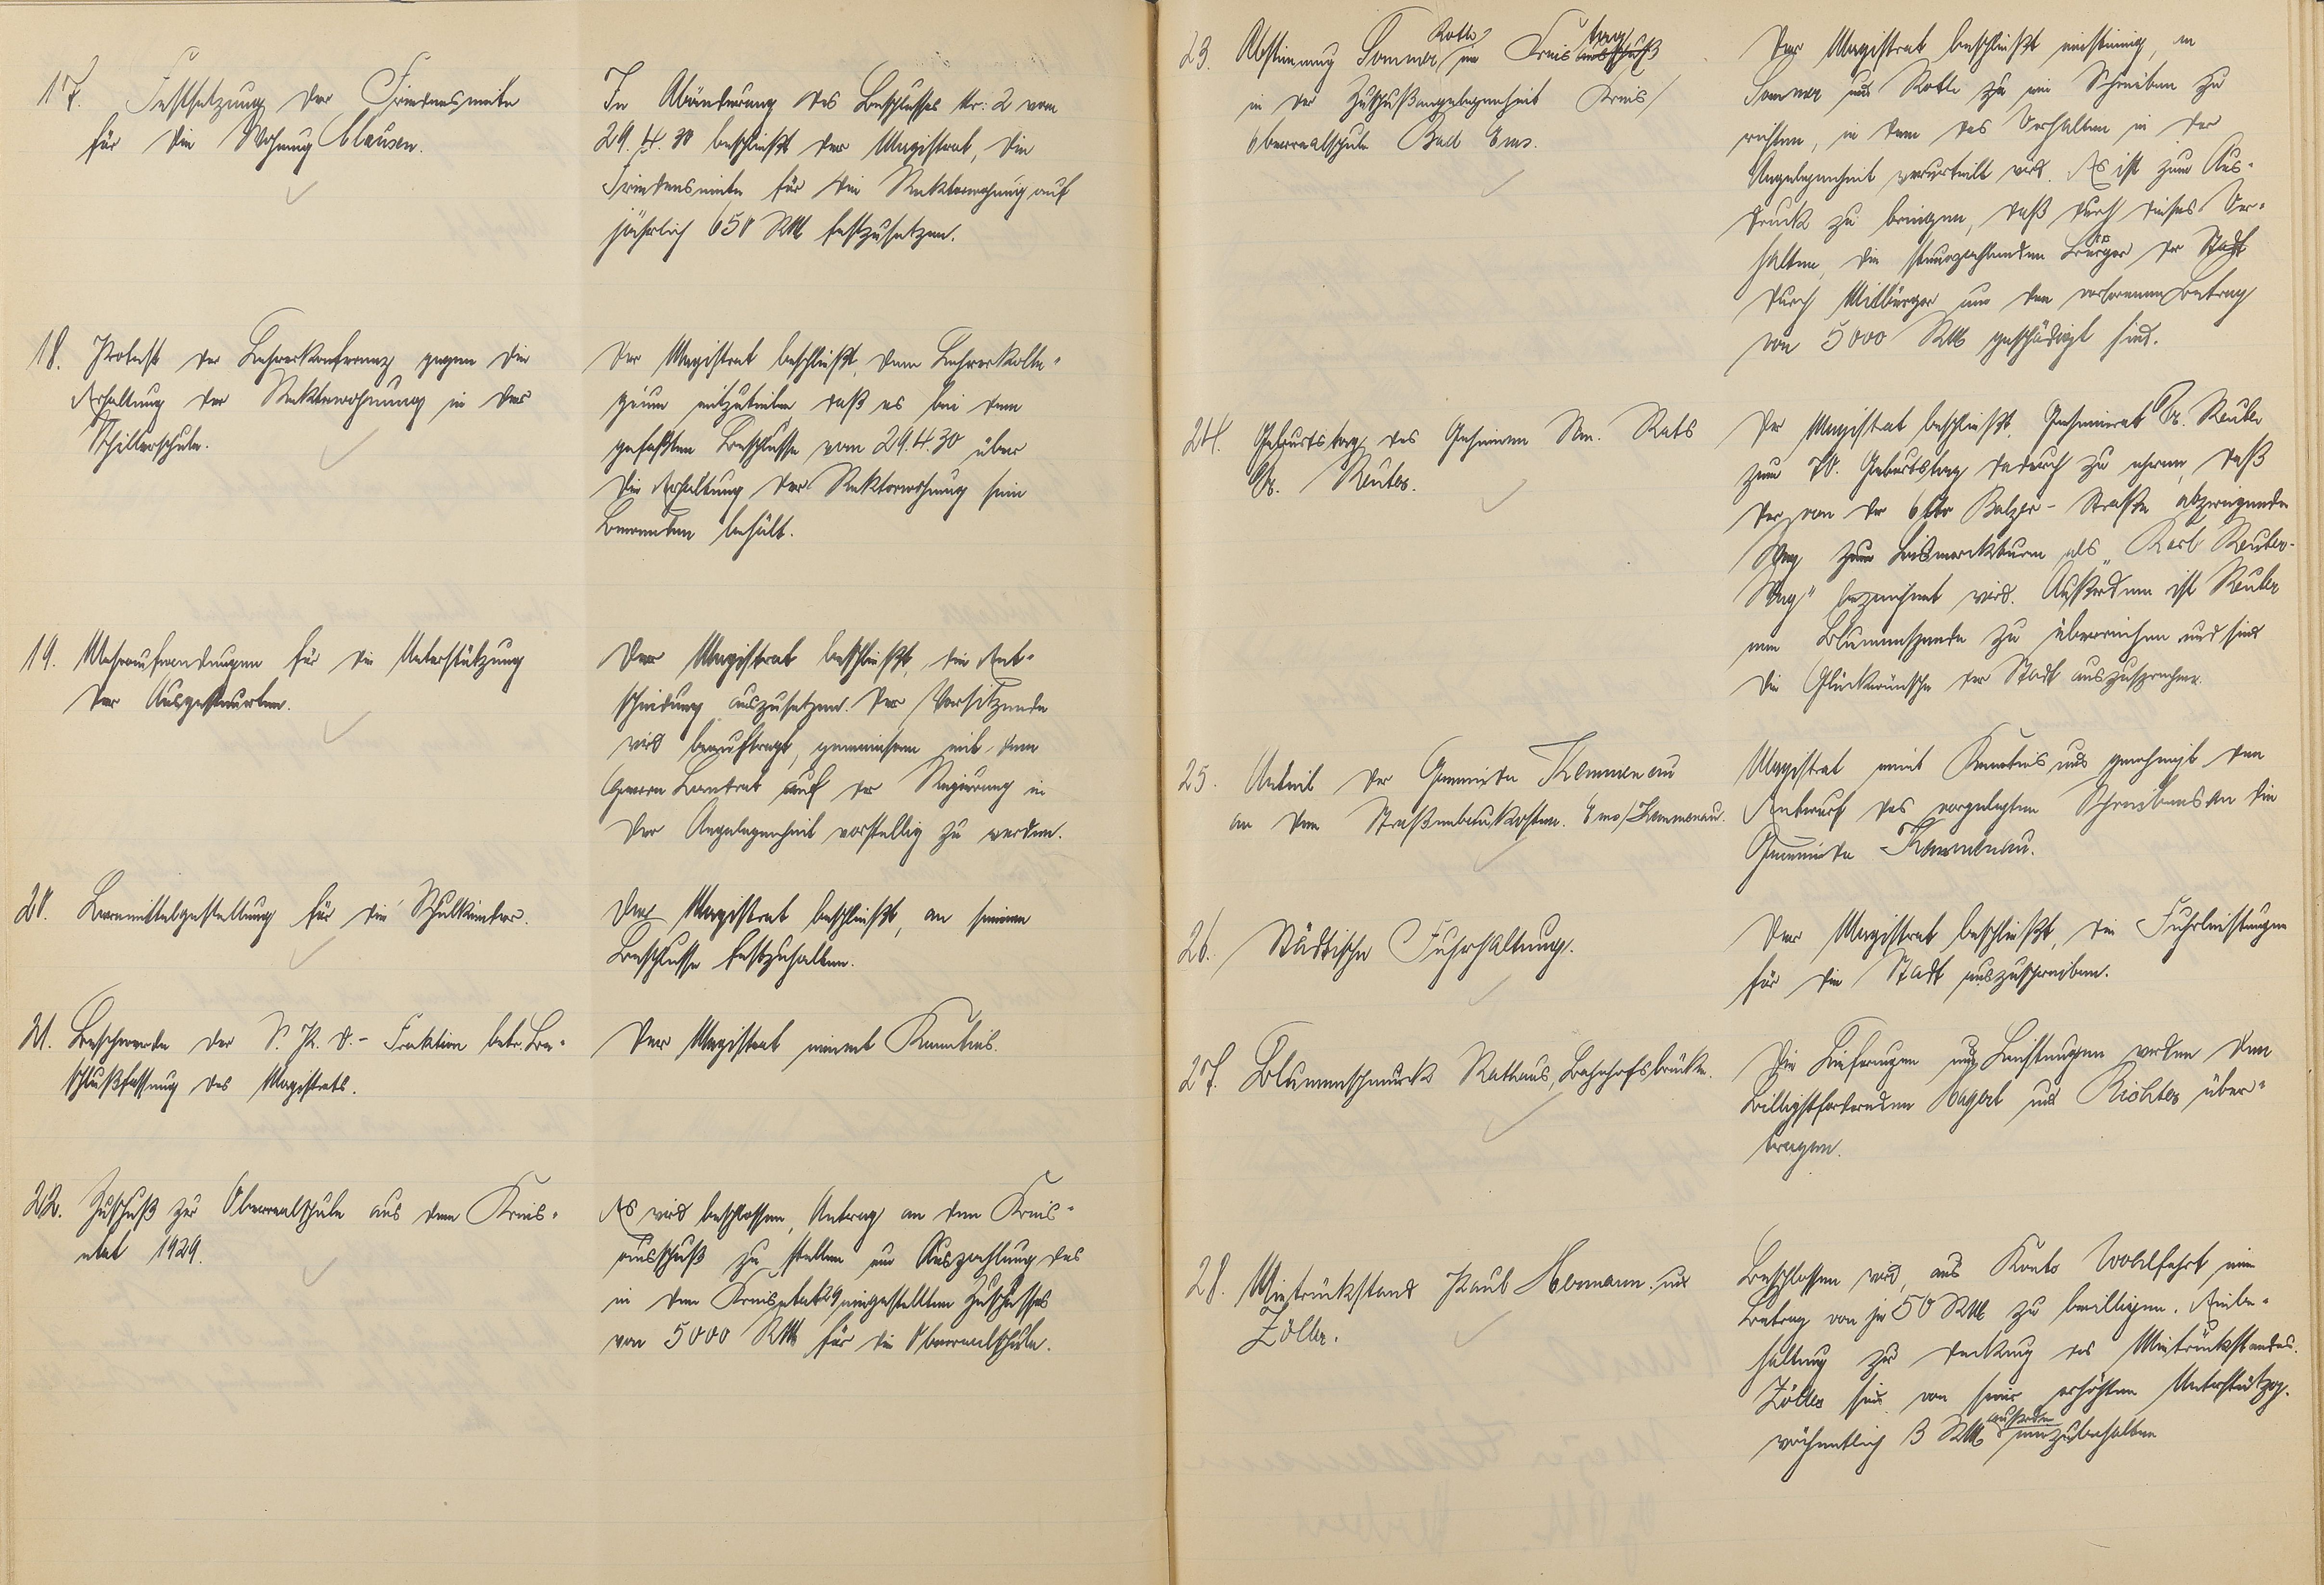 17. Festsetzung der Friedensmiete
für die Wohnung Clausen.
In Abänderung des Beschlusses Nr: 2 vom
29.4.30 beschließt der Magistrat, die
Friedensmiete für die Rektorwohnung auf
jährlich 650 RM festzusetzen.
18. Protest der Lehrerkonferenz gegen die
Erhaltung der Rektorwohnung in der
Schillerschule.
Der Magistrat beschließt, dem Lehrerkolle-
gium mitzuteilen daß es bei dem
gefaßten Beschlusse vom 29.4.30 über
die Erhaltung der Rektorwohnung sein
Bewenden behält.
19. Mehraufwendungen für die Unterstützung
der Ausgesteuerten.
Der Magistrat beschließt, die Ent-
scheidung auszusetzen. Der Vorsitzende
wird beauftragt, gemeinsam mit dem
Herrn Landrat auf der Regierung in
der Angelegenheit vorstellig zu werden.
20. Lernmittelgestellung für die Schulkinder.
Der Magistrat beschließt, an seinem
Beschlusse festzuhalten.
21. Beschwerde der S. P. D.- Fraktion betr. Be-
schlußfassung des Magistrats.
Der Magistrat nimmt Kenntnis.
22. Zuschuß zur Oberrealschule aus dem Kreis-
etat 1929.
Es wird beschlossen, Antrag an den Kreis-
ausschuß zu stellen um Auszahlung des
in dem Kreisetat 29 eingestellten Zuschusses
von 5000 RM für die Oberrealschule.
23. Abstimmung Sommer Roth im Kreis tag ausschuß
in der Zuschußangelegenheit Kreis/
Oberrealschule Bad Ems.
Der Magistrat beschließt einstimmig, an
Sommer und Roth je ein Schreiben zu
richten, in dem das Verhalten in der
Angelegenheit verurteilt wird. Es ist zum Aus-
druck zu bringen, daß durch dieses Ver-
halten, die steuerzahlenden Bürger der Stadt
durch Mitbürger um den verlorenen Betrag
von 5000 RM geschädigt sind.
24. Geburtstag des Geheimen San. Rats
Dr. Reuter.
Der Magistrat beschließt, Geheimrat Dr. Reuter
zum 70. Geburtstag dadurch zu ehren, daß
der von der Balzer-Straße abzweigende
Weg zum Bismarckturm als "Karl Reuter-
Weg" bezeichnet wird. Außerdem ist Reuter
eine Blumenspende zu überreichen und sind
die Glückwünsche der Stadt auszusprechen.
25. Anteil der Gemeinde Kemmenau
an den Straßenbaukosten. Ems/Kemmenau.
Magistrat nimmt Kenntnis und genehmigt den
Entwurf des vorgelegten Schreibens an die
Gemeinde Kemmenau.
26. Städtische Fuhrhaltung.
Der Magistrat beschließt, die Fuhrleistungen
für die Stadt auszuschreiben.
27. Blumenschmuck Rathaus, Bahnhofsbrücke.
Die Lieferungen und Leistungen werden den
Billigstfordernden und Richter über-
tragen.
28. Mietrückstand Paul Hermann und
Zöller.
Beschlossen wird, aus Konto Wohlfahrt einen
Betrag von je 50 RM zu bewilligen. Einbe-
haltung zur Deckung des Mietrückstandes.
Zöller sind von seiner erhöhten Unterstützg.
wöchentlich 3 RM außerdem einzubehalten